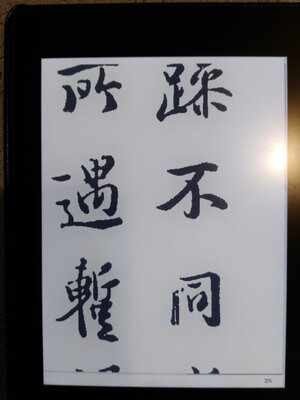 躁不同
所遇暫
2%